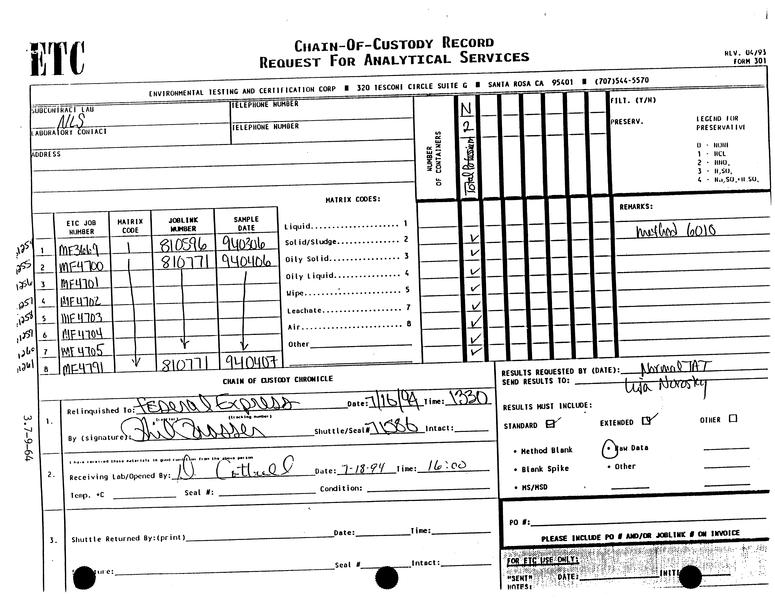 ETC
CHAIN-OF-CUSTODY RECORD
REQUEST FOR ANALYTICAL SERVICES
REV. 04/93
FORM 301
ENVIRONMENTAL TESTING AND CERTIFICATION CORP ■ 320 TESCONI CIRCLE SUITE G ■ SANTA ROSA CA 95401 ■ (707)544-5570
SUBCONTRACT LAB
NLS
TELEPHONE NUMBER
LABORATORY CONTACT
TELEPHONE NUMBER
ADDRESS
NUMBER OF CONTAINERS
Total Potassium 2 N
FILT. (Y/N)
PRESERV.
LEGEND FOR
PRESERVATIVE
0 - NONE
1 - HCL
2 - HNO₃
3 - H₂SO₄
REMARKS:
Method 6010
MATRIX CODES:
Liquid 1
Solid/Sludge 2
Oily Solid 3
Oily Liquid 4
Wipe 5
Leachate 7
Air 8
Other
ETC JOB NUMBER MATRIX CODE JOBLINK NUMBER SAMPLE DATE
1 MF3669 1 810596 940306
2 MF4700 810771 940406
3 MF4701
4 MF4702
5 MF4703
6 MF4704
7 MF4705
8 MF4791 810771 940407
CHAIN OF CUSTODY CHRONICLE
1. Relinquished To: Federal Express Date: 7/16/94 Time: 1330
(tracking number)
By (signature): Shuttle/Seal# 71586 Intact:
I have received these materials in good condition from the above person
2. Receiving Lab/Opened By: Date: 7-18-94 Time: 16:00
Temp. °C Seal #: Condition:
3. Shuttle Returned By:(print) Date: Time:
Seal # Intact:
3.7-9-64
RESULTS REQUESTED BY (DATE): Normal TAT
SEND RESULTS TO: Lisa Norosky
RESULTS MUST INCLUDE:
STANDARD EXTENDED OTHER
• Method Blank • Raw Data
• Blank Spike • Other
• MS/MSD
PO #:
PLEASE INCLUDE PO # AND/OR JOBLINK # ON INVOICE
FOR ETC USE ONLY:
"SENT" DATE: INITI
NOTES: